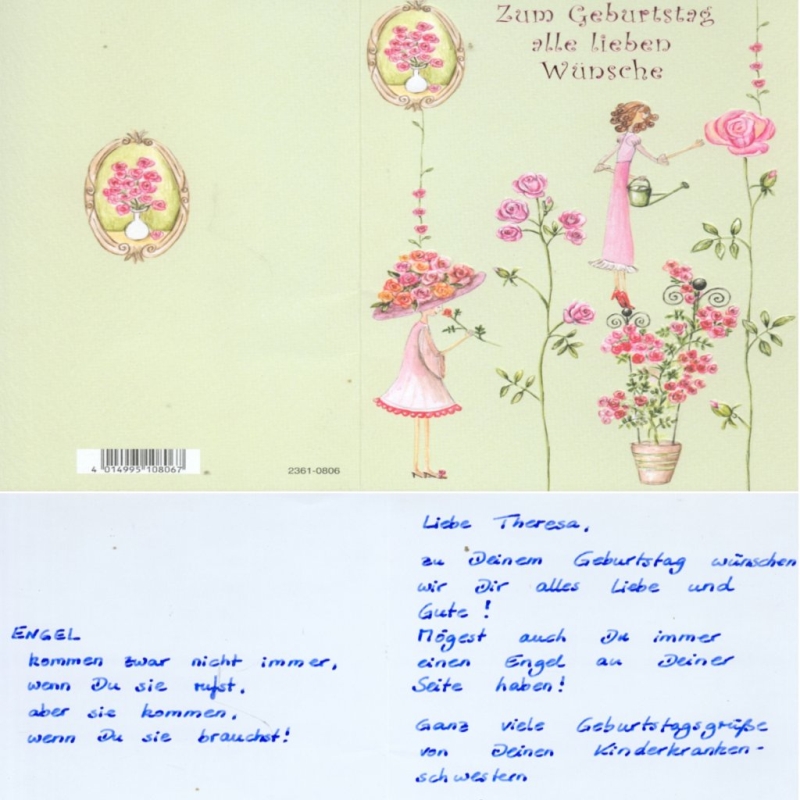 Zum Geburtstag
alle lieben
Wünsche
4 014995 108067
2361-0806
ENGEL
kommen zwar nicht immer,
wenn Du sie rufst,
aber sie kommen,
wenn Du sie brauchst!
Liebe Theresa,
zu Deinem Geburtstag wünschen
wir Dir alles Liebe und
Gute!
Mögest auch Du immer
einen Engel an Deiner
Seite haben!
Ganz viele Geburtstagsgrüße
von Deinen Kinderkranken-
schwestern